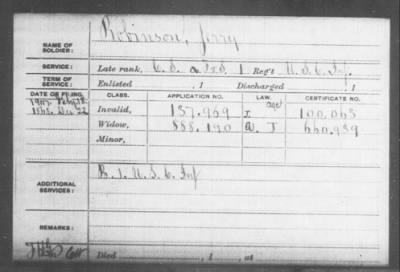 Robinson, Jerry
NAME OF SOLDIER:
SERVICE: Late rank, 1 Reg't U.S.C. Inf.
TERM OF SERVICE: Enlisted , 1 Discharged , 1
DATE OF FILING. CLASS. APPLICATION NO. LAW. CERTIFICATE NO.
Invalid, 157.969 100.063
Widow, 888.190 660.939
Minor,
ADDITIONAL SERVICES: B. 1 U.S.C. Inf
REMARKS:
Died , 1 , at